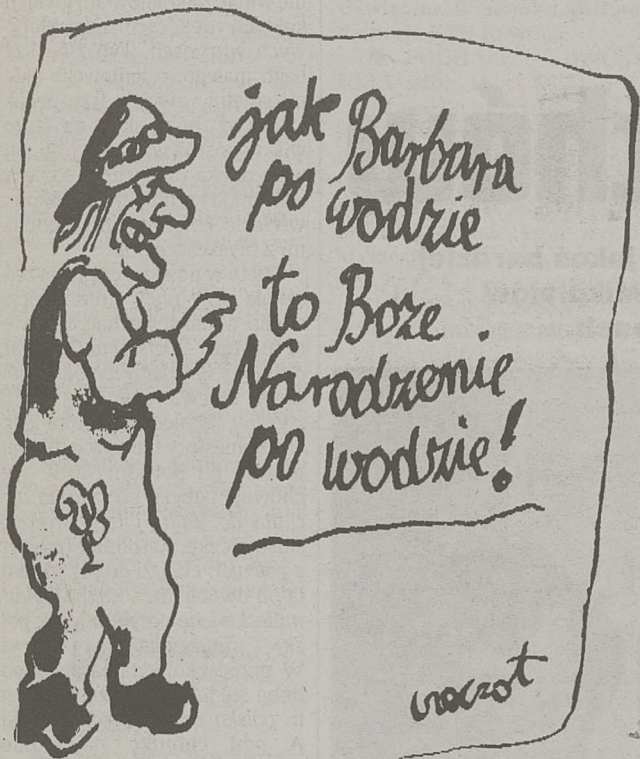 jak Barbara
po wodzie
to Boże
Narodzenie
po wodzie!